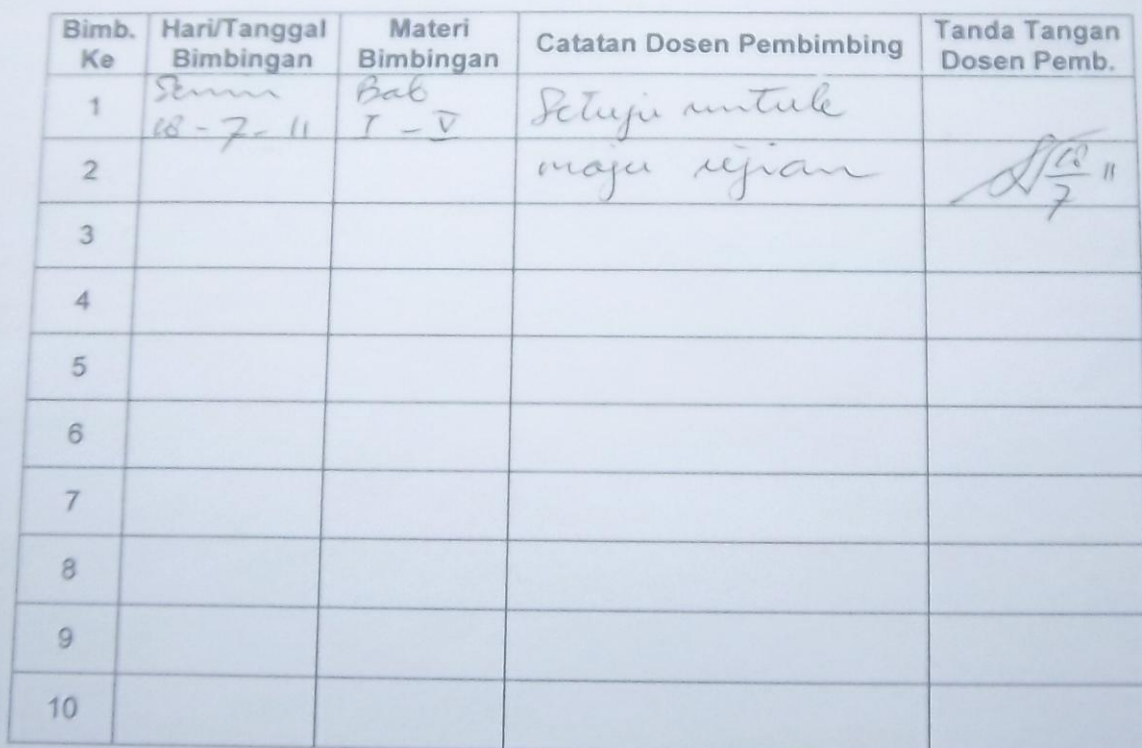 Bimb. Ke Hari/Tanggal Bimbingan Materi Bimbingan Catatan Dosen Pembimbing Tanda Tangan Dosen Pemb.
1 Senin Bab Setuju untuk
18 - 7 - 11 I - V
2 maju ujian 18/7 11
3
4
5
6
7
8
9
10